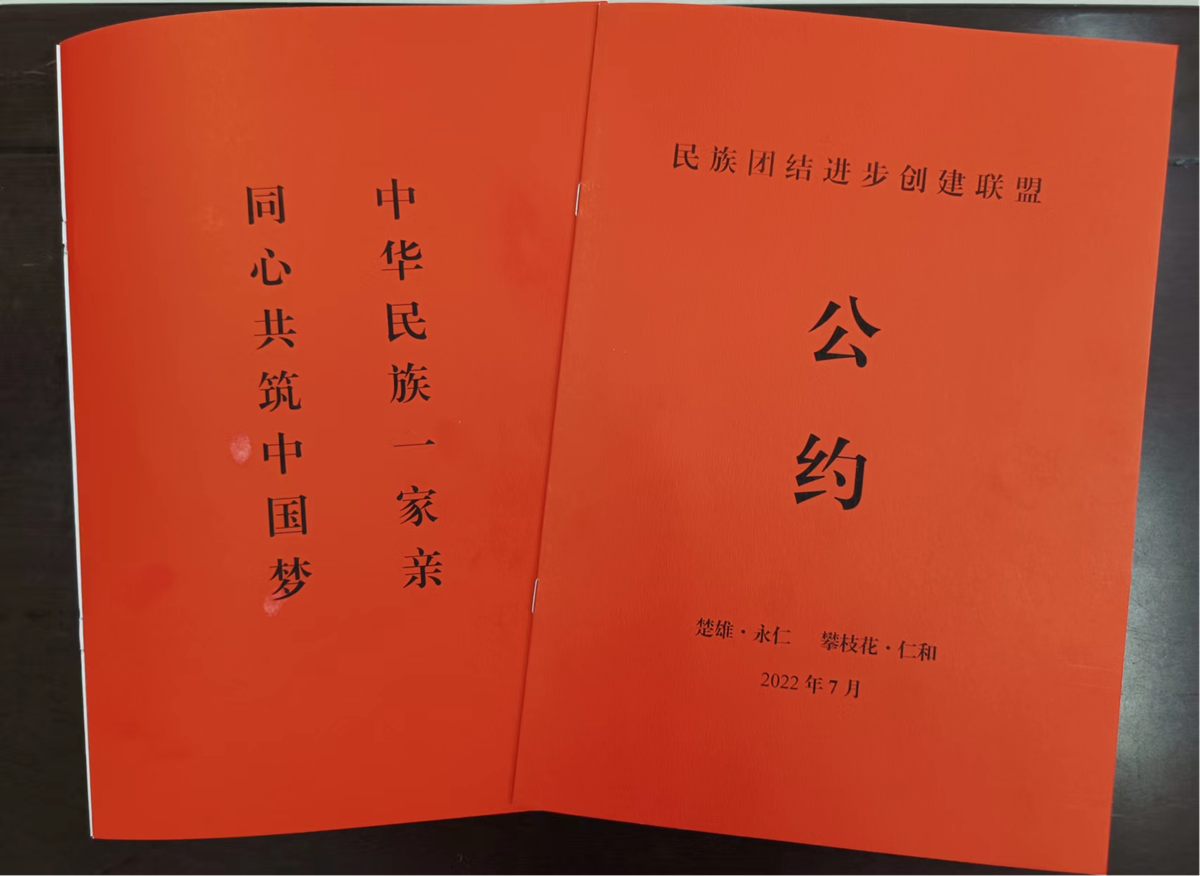 民族团结进步创建联盟
公
约
楚雄·永仁 攀枝花·仁和
2022年7月
中华民族一家亲
同心共筑中国梦